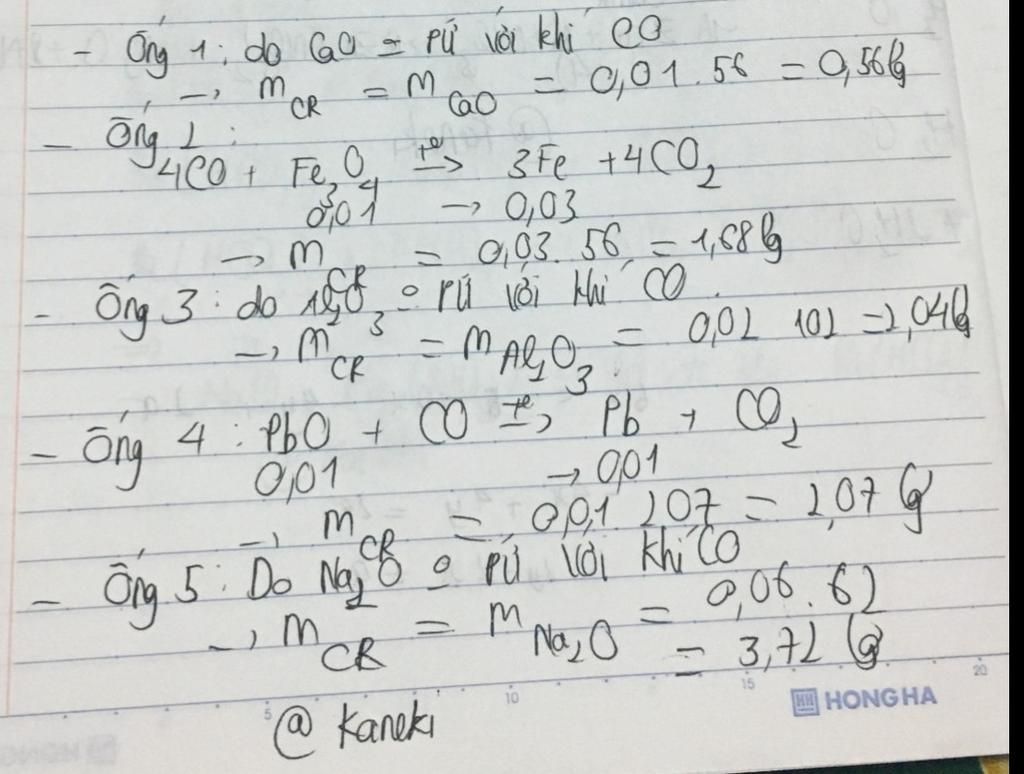 - Ống 1 : do CaO = PƯ với khí CO
→ m CR = m CaO = 0,01 . 56 = 0,56 (g)
- Ống 2 :
4CO + Fe3O4 t° → 3Fe + 4CO2
0,01 → 0,03
→ m CR = 0,03 . 56 = 1,68 (g)
- Ống 3 : do Al2O3 o PƯ với khí CO
→ m CR = m Al2O3 = 0,02 102 = 2,04 (g)
- Ống 4 : PbO + CO t° → Pb + CO2
0,01 → 0,01
→ m CR = 0,01 . 207 = 2,07 (g)
- Ống 5 : Do Na2O o PƯ với khí CO
→ m CR = m Na2O = 0,06 . 62
= 3,72 (g)
5 10 15 20
HH HONG HA
@ Kaneki